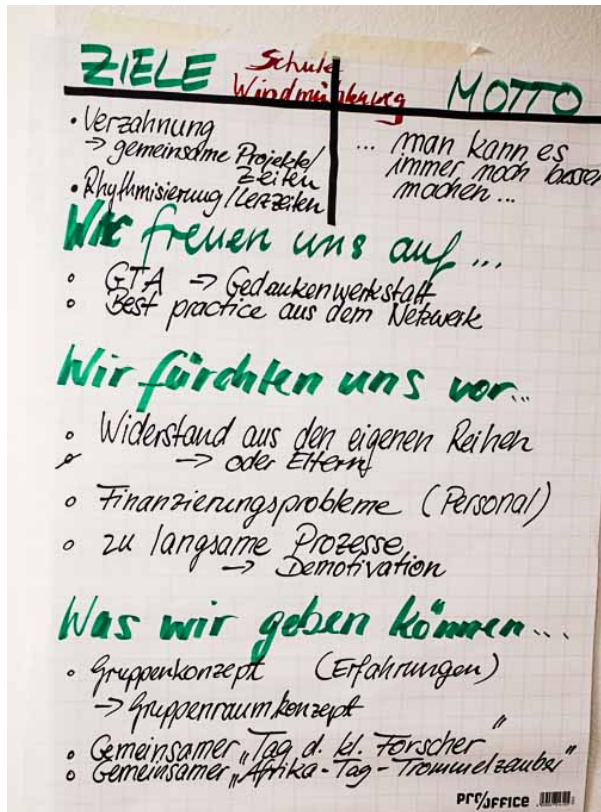 ZIELE
Schule
MOTTO
• Verzahnung
→ gemeinsame Projekte/
Zeiten
• Rhythmisierung/Lernzeiten
... man kann es
immer noch besser
machen...
Wir freuen uns auf...
◦ GTA → Gedankenwerkstatt
◦ Best practice aus dem Netzwerk
Wir fürchten uns vor...
◦ Widerstand aus den eigenen Reihen
→ oder Eltern
◦ Finanzierungsprobleme (Personal)
◦ zu langsame Prozesse
→ Demotivation
Was wir geben können...
◦ Gruppenkonzept (Erfahrungen)
→ Gruppenraumkonzept
◦ Gemeinsamer „Tag d. kl. Forscher"
◦ Gemeinsamer „Afrika-Tag-Trommelzauber"
PRO/OFFICE